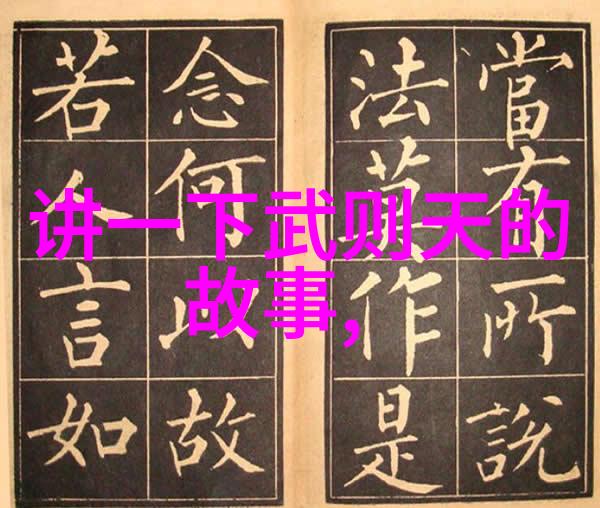 當有所說
法莫作是
念何以故
若人言如
讲一下武则天的
故事,